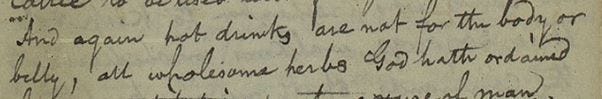 And again hot drinks are not for the body or
belly, all wholesome herbs God hath ordained
nature of man,